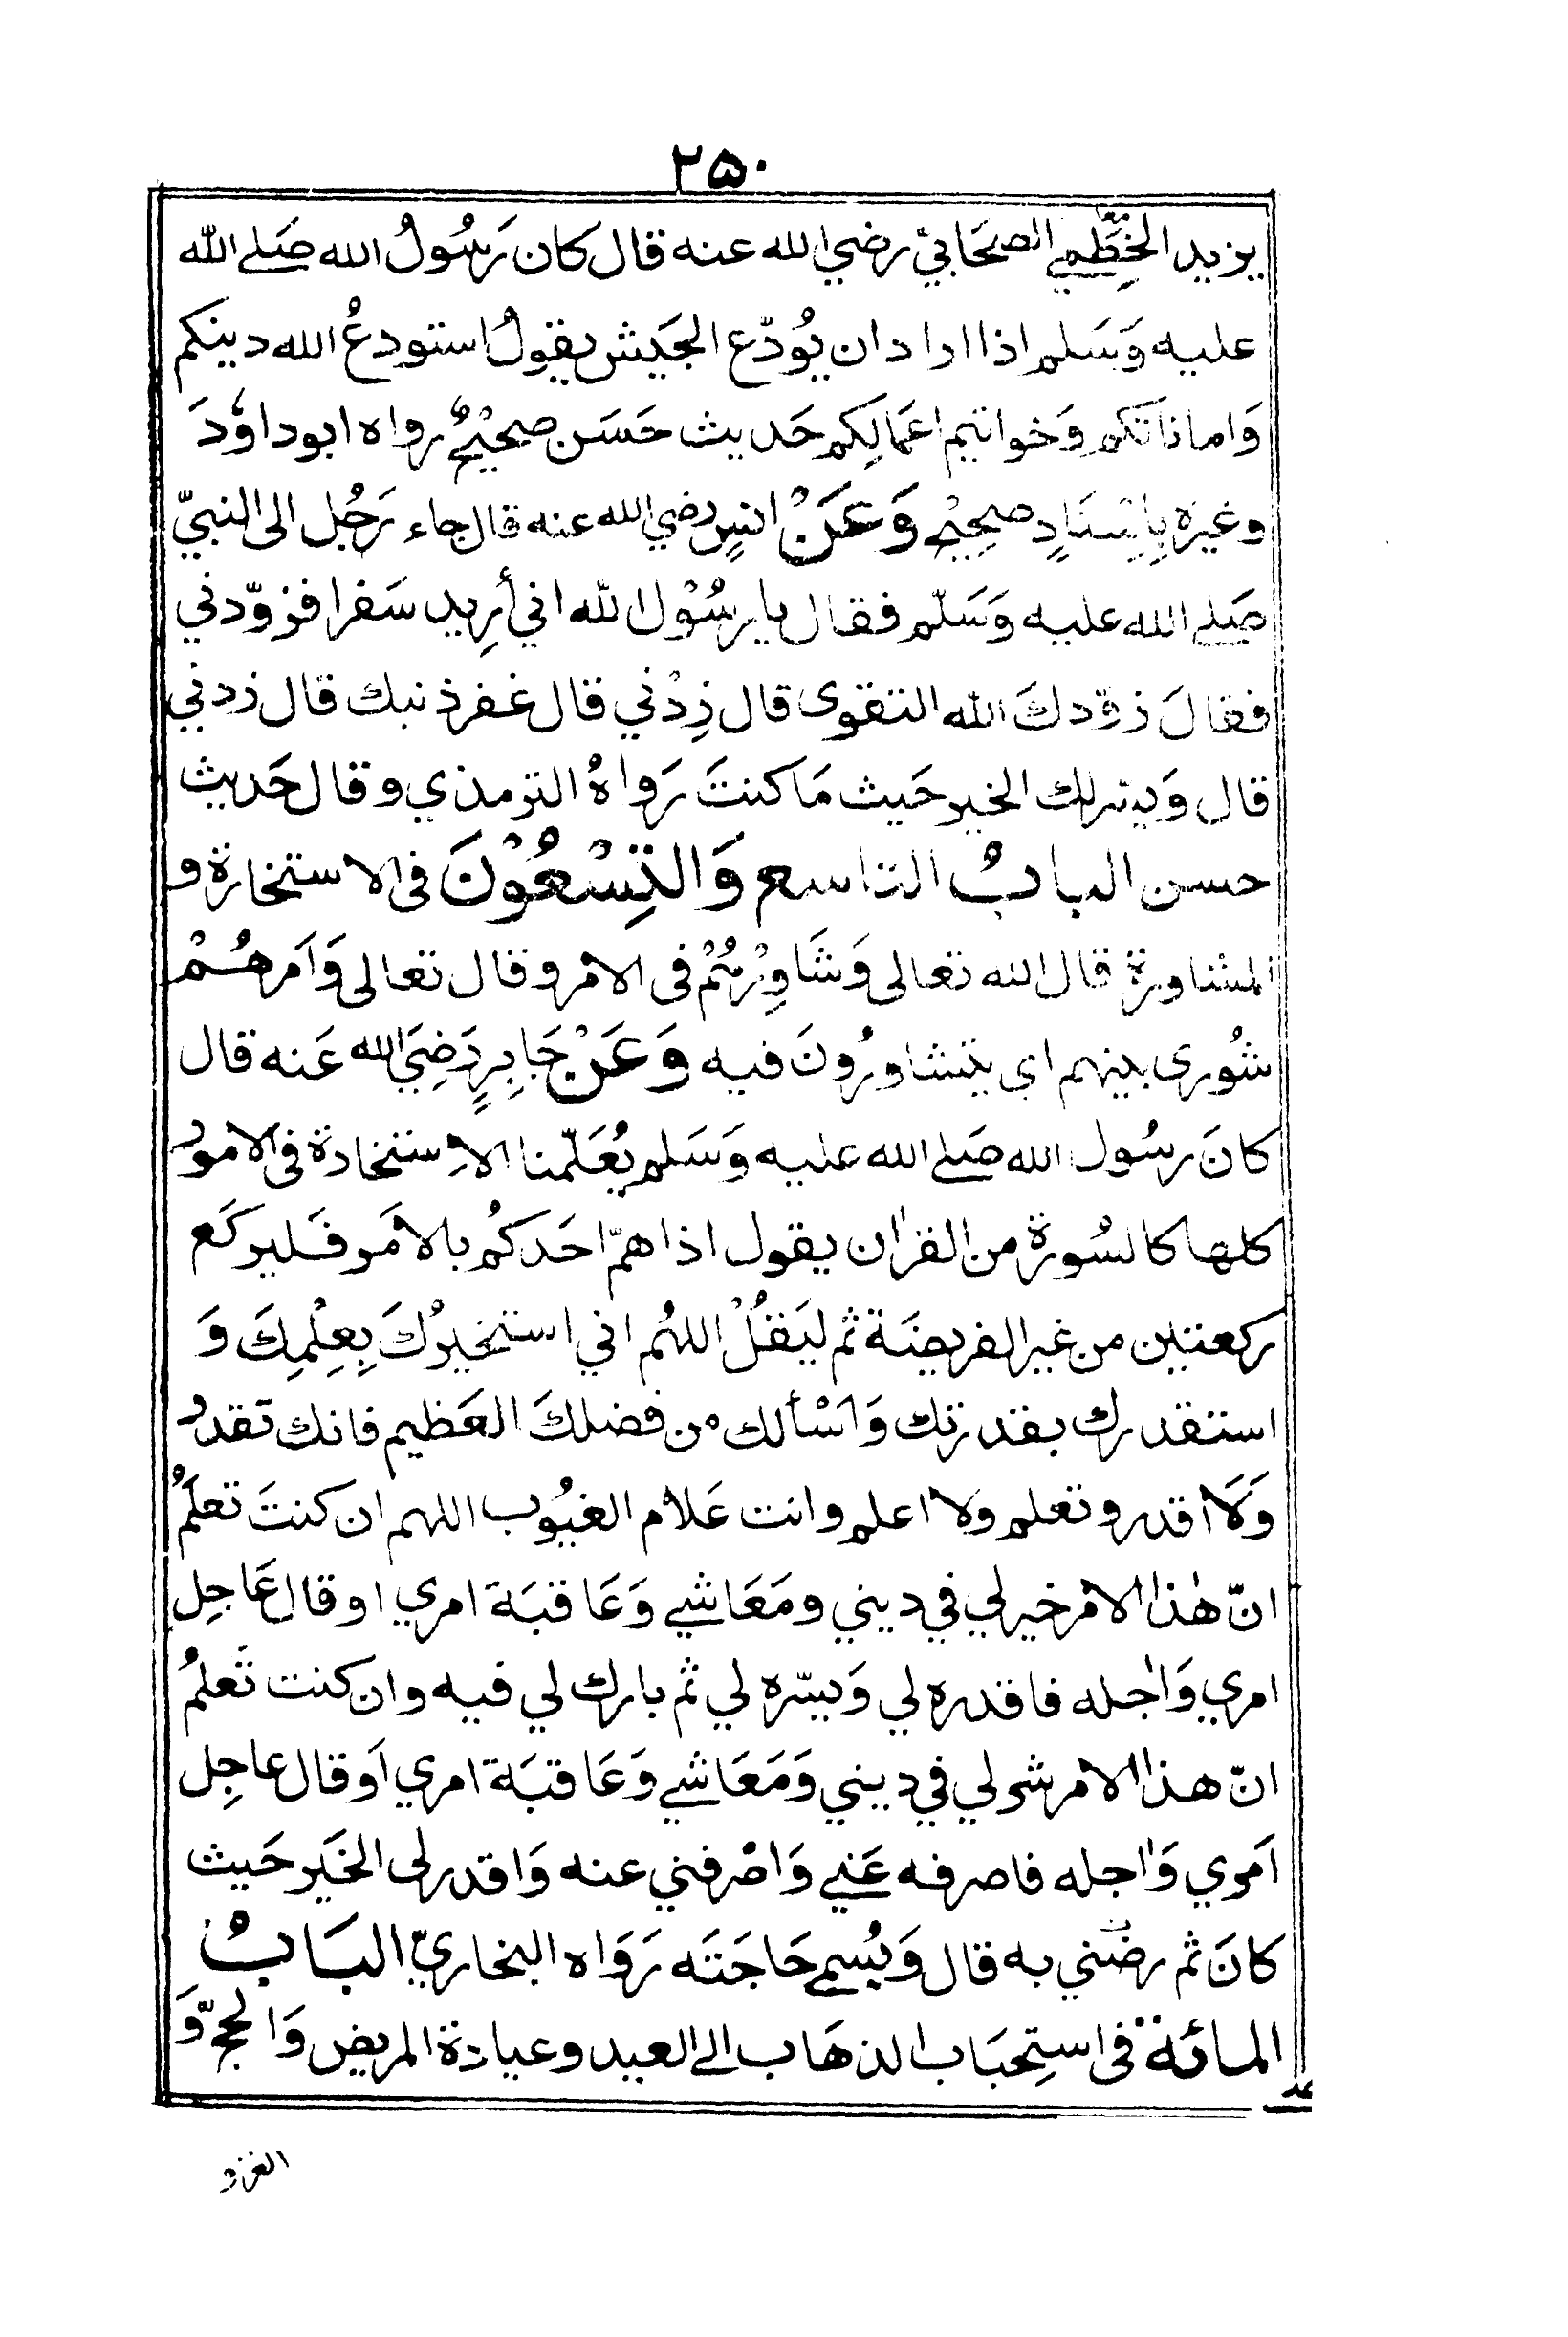 ٢٥٠
يزيد الخِطَمي الصحَابيّ رضي الله عنه قال كان رَسُولُ الله صَلى الله
عليه وَسَلم اذا اراد ان يُودّع الجَيش يقولُ استودعُ الله دينكم
وَاماناتَكم وَخواتيم اعمَالِكم حَديث حَسَن صحيْحٌ رواه ابو داوٗدَ
وغيره بِاِسْنَادٍ صحِيْحٍ وَعَنْ انسٍ رضي الله عنه قال جاء رَجُل الى النبيّ
صَلى الله عليه وَسَلّم فقال يا رسُوْل الله اني أرِيد سَفرا فزوّدني
فقالَ زوّدكَ الله التقوى قال زِدْني قال غفر ذنبك قال زدني
قال وَيسّر لك الخير حَيث مَا كنتَ رَواهُ الترمذي وقال حَديث
حسن البابُ التاسع وَالتِسْعُوْنَ فى الاستخارة و
المشاورة قال الله تعالى وَشَاوِرْهُمْ فى الامر وقال تعالى وَاَمرهُمْ
شُورى بينهم اى يتشاورُونَ فيه وَعَنْ جَابِرٍ رَضِيَ الله عَنه قال
كانَ رسُول الله صَلى الله عليه وَسَلم يُعَلّمنا الاِستخارة فى الامور
كلها كالسُورة من القرٰان يقول اذا همّ احَدكُم بالامَر فَليركَع
ركعتين من غير الفريضَة ثم ليَقُلْ اللهُم اني استخيرُكَ بِعِلْمِكَ وَ
استقدرك بقدرتك وَاسْألك من فضلكَ العَظيم فانك تقدر
وَلَا أقدر وتعلم ولا اعلم وانت عَلام الغيُوب اللهم ان كنتَ تعلَمُ
انّ هٰذا الامر خير لي في ديني ومَعَاشي وَعَاقبَة امري او قال عَاجِل
امري وَاٰجله فاقدره لي وَيسّره لي ثم بارك لي فيه وان كنت تَعلمُ
انّ هذا الامر شر لي في ديني وَمَعَاشي وَعَاقبَة امري اَو قال عاجِل
اَمري وَاٰجله فاصرفه عَني وَاصْرفني عنه وَاقدر لى الخَير حَيث
كانَ ثم رضّني به قال وَيُسمي حَاجَتَه رَوَاه البخاريّ البَابُ
المائة فى استِحبَاب الذهَاب الى العيد وعيادة المريض وَالحجّ وَ
الغزو